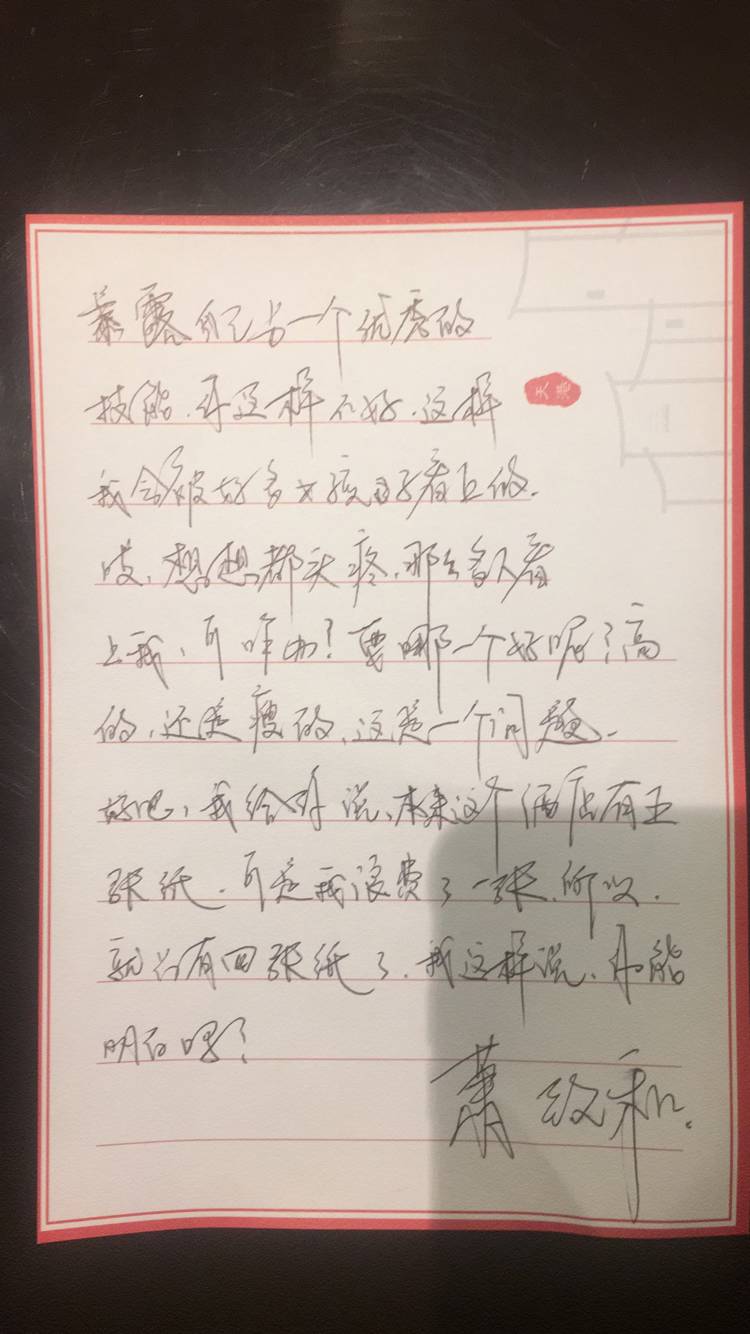 暴露自己另一个优秀的
技能.再这样不好.这样
我会被好多女孩子看上的.
哎,想想都头疼,那么多人看
上我,可咋办?要哪一个好呢?高
的,还是瘦的,这是一个问题.
好吧,我给你说,本来这个酒店有五
张纸.可是我浪费了一张,所以.
就只有四张纸了.我这样说,你能
明白嘿?
萧